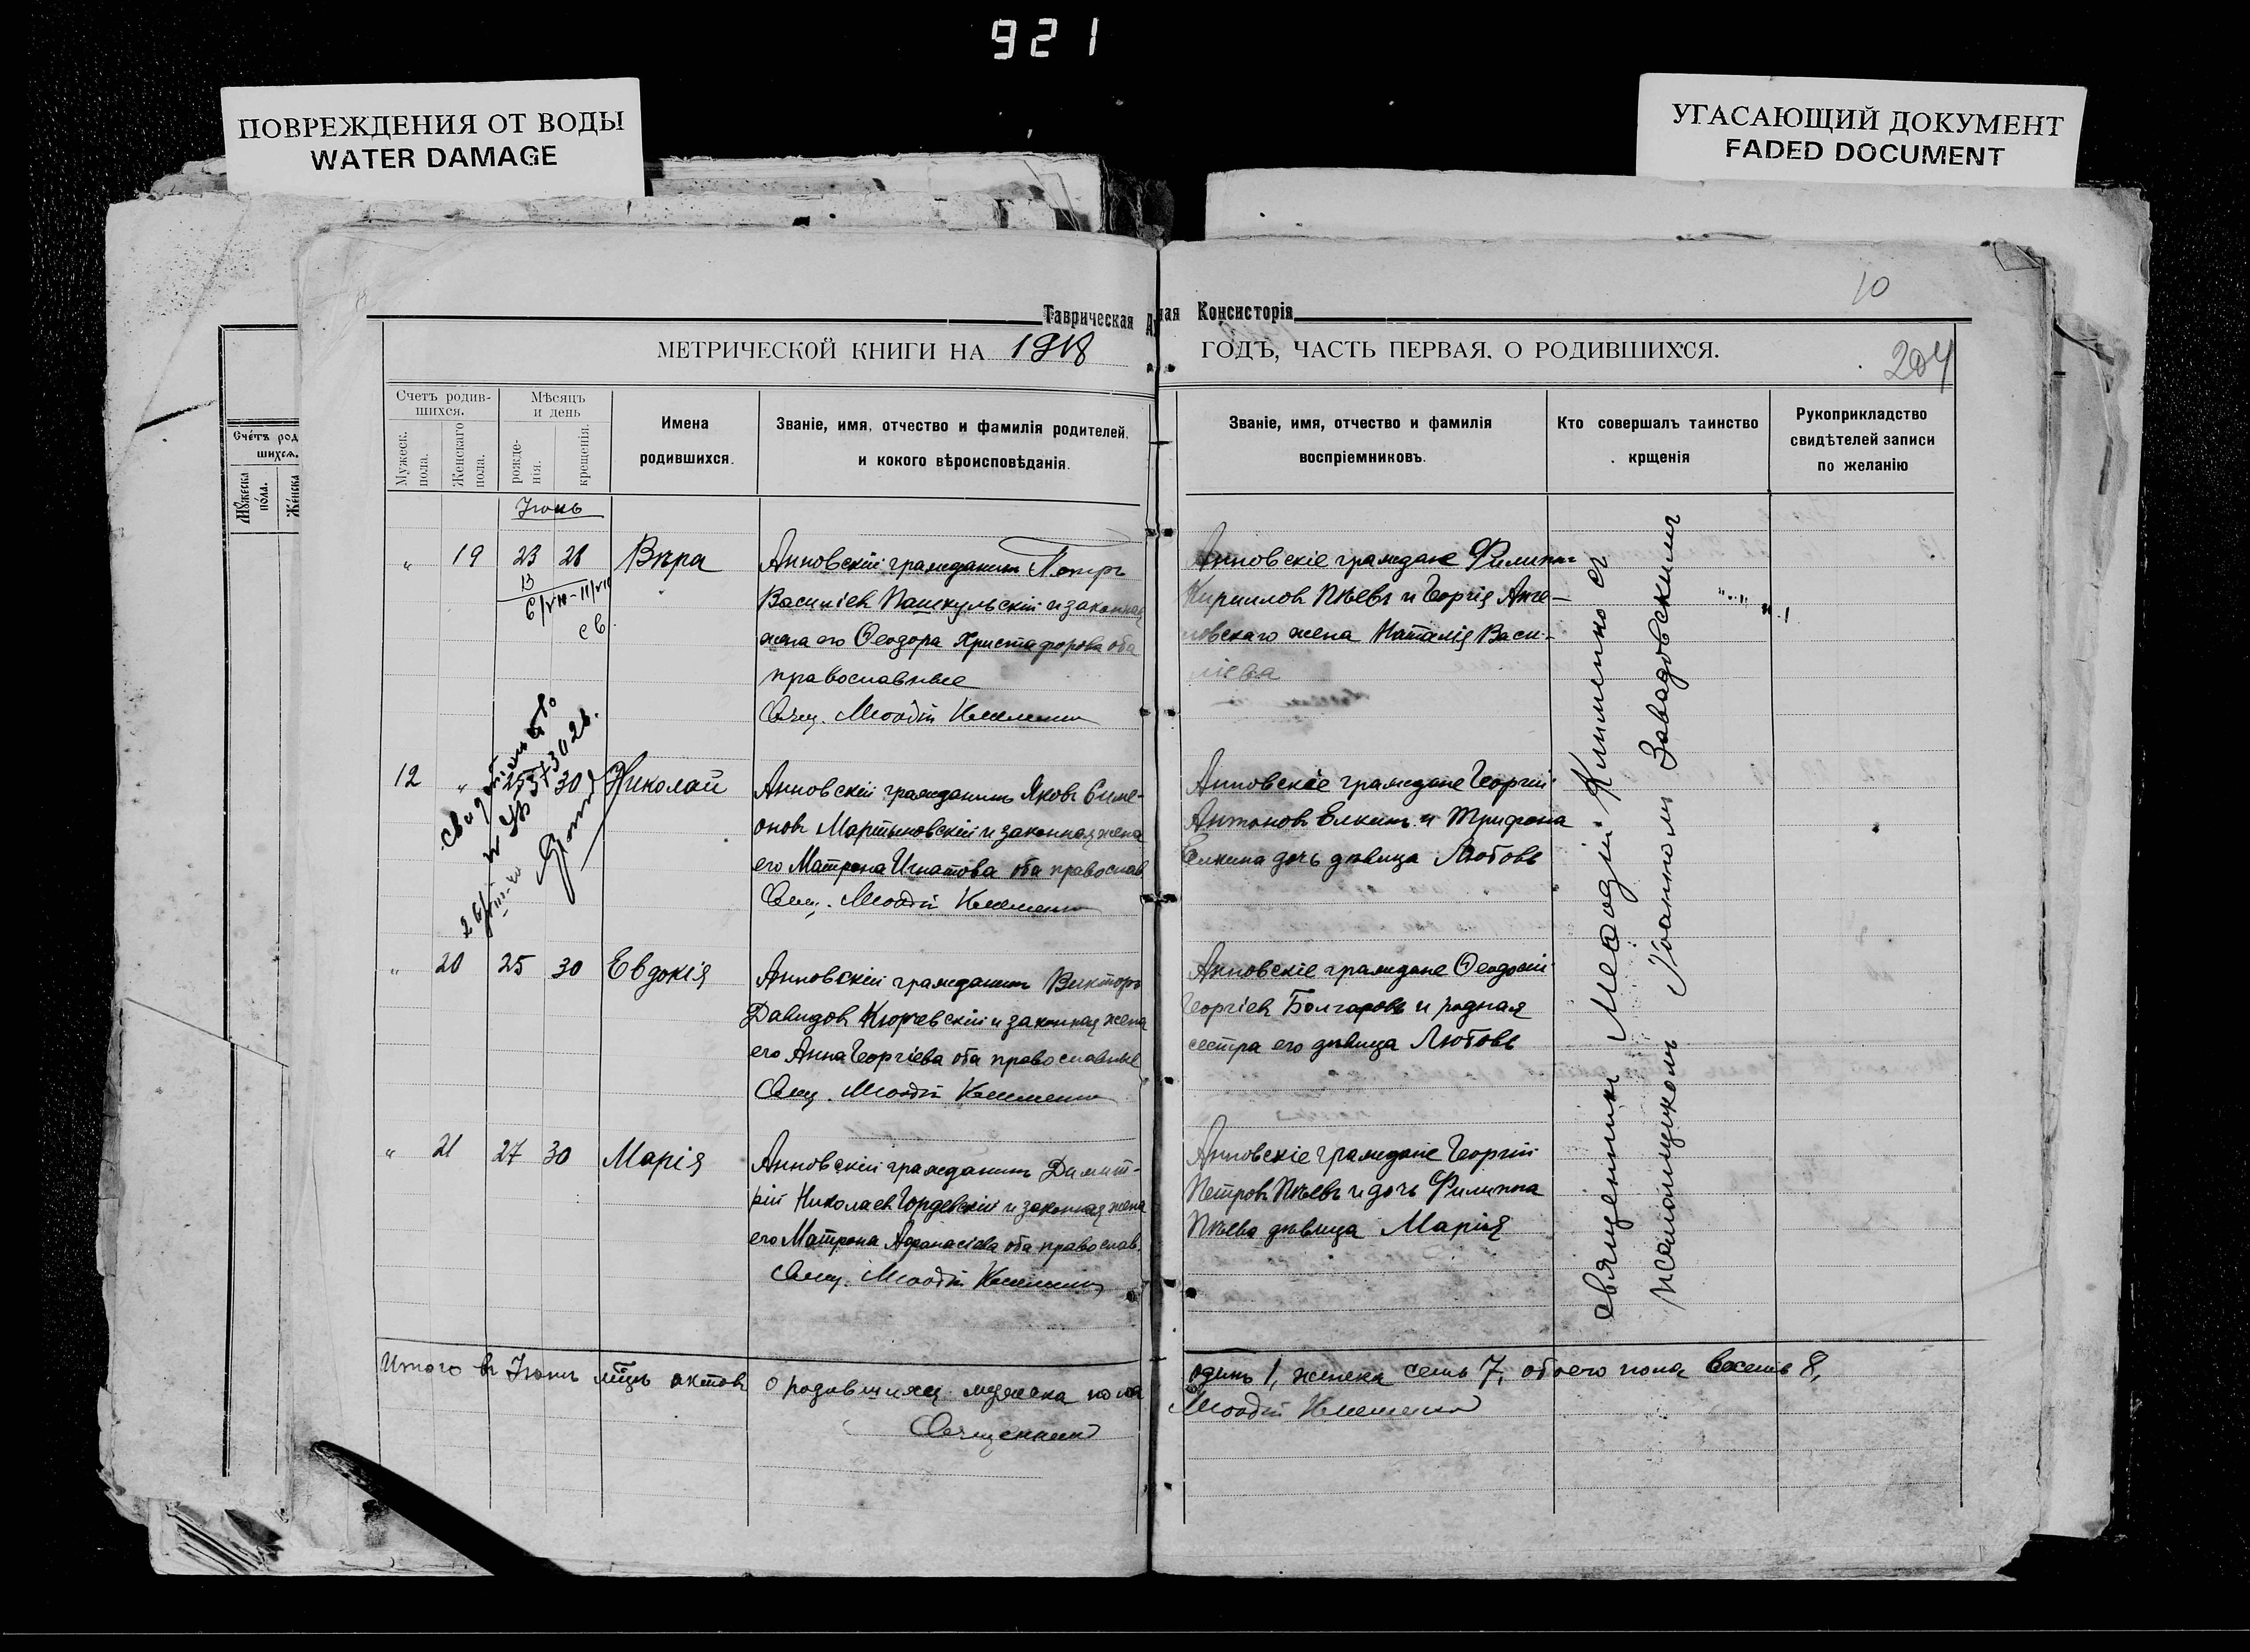 921
ПОВРЕЖДЕНИЯ ОТ ВОДЫ
WATER DAMAGE
УГАСАЮЩИЙ ДОКУМЕНТ
FADED DOCUMENT
10
Таврическая Д
ная Консисторія
МЕТРИЧЕСКОЙ КНИГИ НА 1918
ГОДЪ, ЧАСТЬ ПЕРВАЯ. О РОДИВШИХСЯ.
204
Счетъ род
шихся.
Мужеска
пола.
Женска
Счетъ родив-
шихся.
Мужеск.
пола.
Женскаго
пола.
Мѣсяцъ
и день
рожде-
нія.
крещенія.
Имена
родившихся.
Званіе, имя, отчество и фамилія родителей,
и кокого вѣроисповѣданія.
Званіе, имя, отчество и фамилія
воспріемниковъ.
Кто совершалъ таинство
крщенія
Рукоприкладство
свидѣтелей записи
по желанію
Іюнь
" 19 23 28 Вѣра
Анновскій гражданинъ Петръ
Василіевъ Пашкульскій и законная
жена его Ѳеодора Христафорова оба
православные
Свящ. Меѳодій Клименко
Анновскіе граждане Филиппъ
Кирилловъ Пѣевъ и Георгія Анге-
ловскаго жена Наталія Васи-
ліева
св.
12 " 25 30 Николай
Анновскій гражданинъ Яковъ Симе-
оновъ Мартыновскій и законная жена
его Матрона Игнатова оба православ
Свящ. Меѳодій Клименко
Анновскіе граждане Георгій
Антоновъ Елкинъ и Трифона
Елкина дочь дѣвица Любовь
" 20 25 30 Евдокія
Анновскій гражданинъ Викторъ
Давидовъ Кюрчевскій и законная жена
его Анна Георгіева оба православные
Свящ. Меѳодій Клименко
Анновскіе граждане Ѳеодосій
Георгіевъ Болгаровъ и родная
сестра его дѣвица Любовь
" 21 27 30 Марія
Анновскій гражданинъ Димит-
рій Николаевъ Гордевскій и законная жена
его Матрона Аѳанасіева оба православ.
Свящ. Меѳодій Клименко
Анновскіе граждане Георгій
Петровъ Пѣевъ и дочь Филиппа
Пѣева дѣвица Марія
священникъ Меѳодій Клименко съ
псаломщикомъ Іоанномъ Завадовскимъ
Итого въ Іюнѣ мѣцѣ актовъ о родившихся мужеска пола
одинъ 1, женска семь 7, обоего пола восемь 8,
Священникъ
Меѳодій Клименко